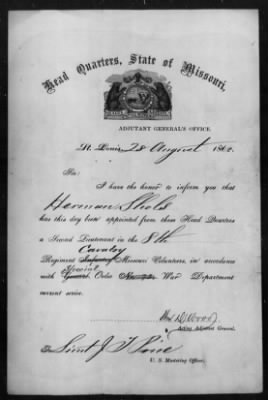 Head Quarters, State of Missouri,
ADJUTANT GENERAL'S OFFICE.
St. Louis 28 August 1862.
Sir:
I have the honor to inform you that
Herman
has this day been appointed from these Head Quarters
a Second Lieutenant in the 8th
Cavalry
Regiment Infantry Missouri Volunteers, in accordance
Special
with General Order War Department
current series.
Wm D Wood
Acting Adjutant General.
To Lieut J T
U. S. Mustering Officer.